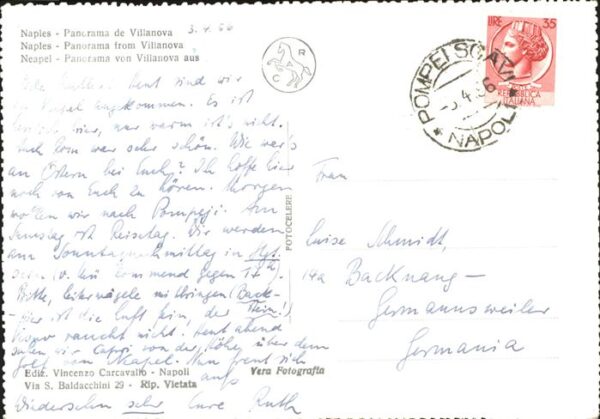 Naples - Panorama de Villanova 3.4.56
Naples - Panorama from Villanova
Neapel - Panorama von Villanova aus
C A R
LIRE 35
REPUBBLICA
ITALIANA
POMPEI SCAVI
NAPOLI
Heut sind wir
in Neapel angekommen. Es ist
hier, nur warm ist's nicht.
Auch Rom war sehr schön. Wie war's
an Ostern bei Euch? Ich hoffe hier
noch von Euch zu hören. Morgen
wollen wir nach Pompeji. Am
Samstag ist Reisetag. Wir werden
am Sonntagnachmittag in Stgt.
sein, v. Mü kommend gegen
Bitte, leiterwägele mitbringen (Back-
ist die Luft hin, der
Vesuv raucht nicht. Heut abend
sahen wir Capri von der Höhe über dem
Golf von Neapel. Nun freut sich
aufs
Wiedersehn sehr Eure Ruth
FOTOCELERE
Frau
Luise Schmidt,
14a Backnang-
Germannsweiler
Germania
Ediz. Vincenzo Carcavallo - Napoli
Via S. Baldacchini 29 - Rip. Vietata
Vera Fotografia